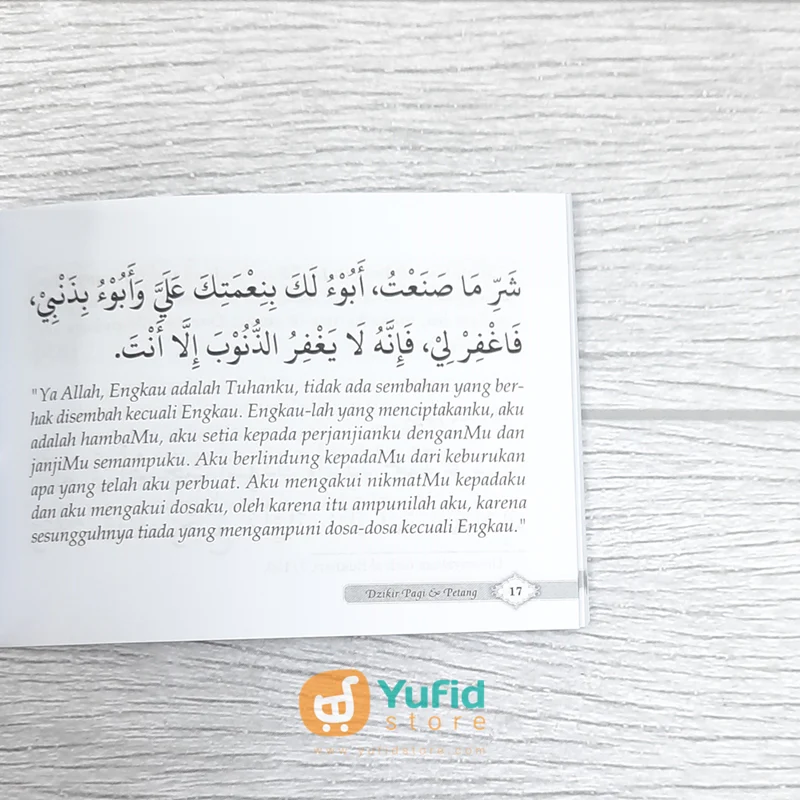 شَرِّ مَا صَنَعْتُ، أَبُوْءُ لَكَ بِنِعْمَتِكَ عَلَيَّ وَأَبُوْءُ بِذَنْبِيْ،
فَاغْفِرْ لِيْ، فَإِنَّهُ لَا يَغْفِرُ الذُّنُوْبَ إِلَّا أَنْتَ.
"Ya Allah, Engkau adalah Tuhanku, tidak ada sembahan yang ber-
hak disembah kecuali Engkau. Engkau-lah yang menciptakanku, aku
adalah hambaMu, aku setia kepada perjanjianku denganMu dan
janjiMu semampuku. Aku berlindung kepadaMu dari keburukan
apa yang telah aku perbuat. Aku mengakui nikmatMu kepadaku
dan aku mengakui dosaku, oleh karena itu ampunilah aku, karena
sesungguhnya tiada yang mengampuni dosa-dosa kecuali Engkau."
Dzikir Pagi & Petang 17
Yufid
store
www.yufidstore.com